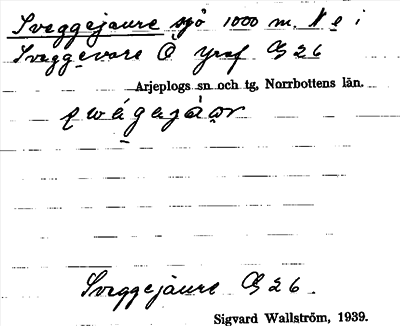 Sveggejaure sjö 1000 m. N e i
Sveggevare Ö Yraf G 26
Arjeplogs sn och tg, Norrbottens län.
Sveggejaure G 26.
Sigvard Wallström, 1939.